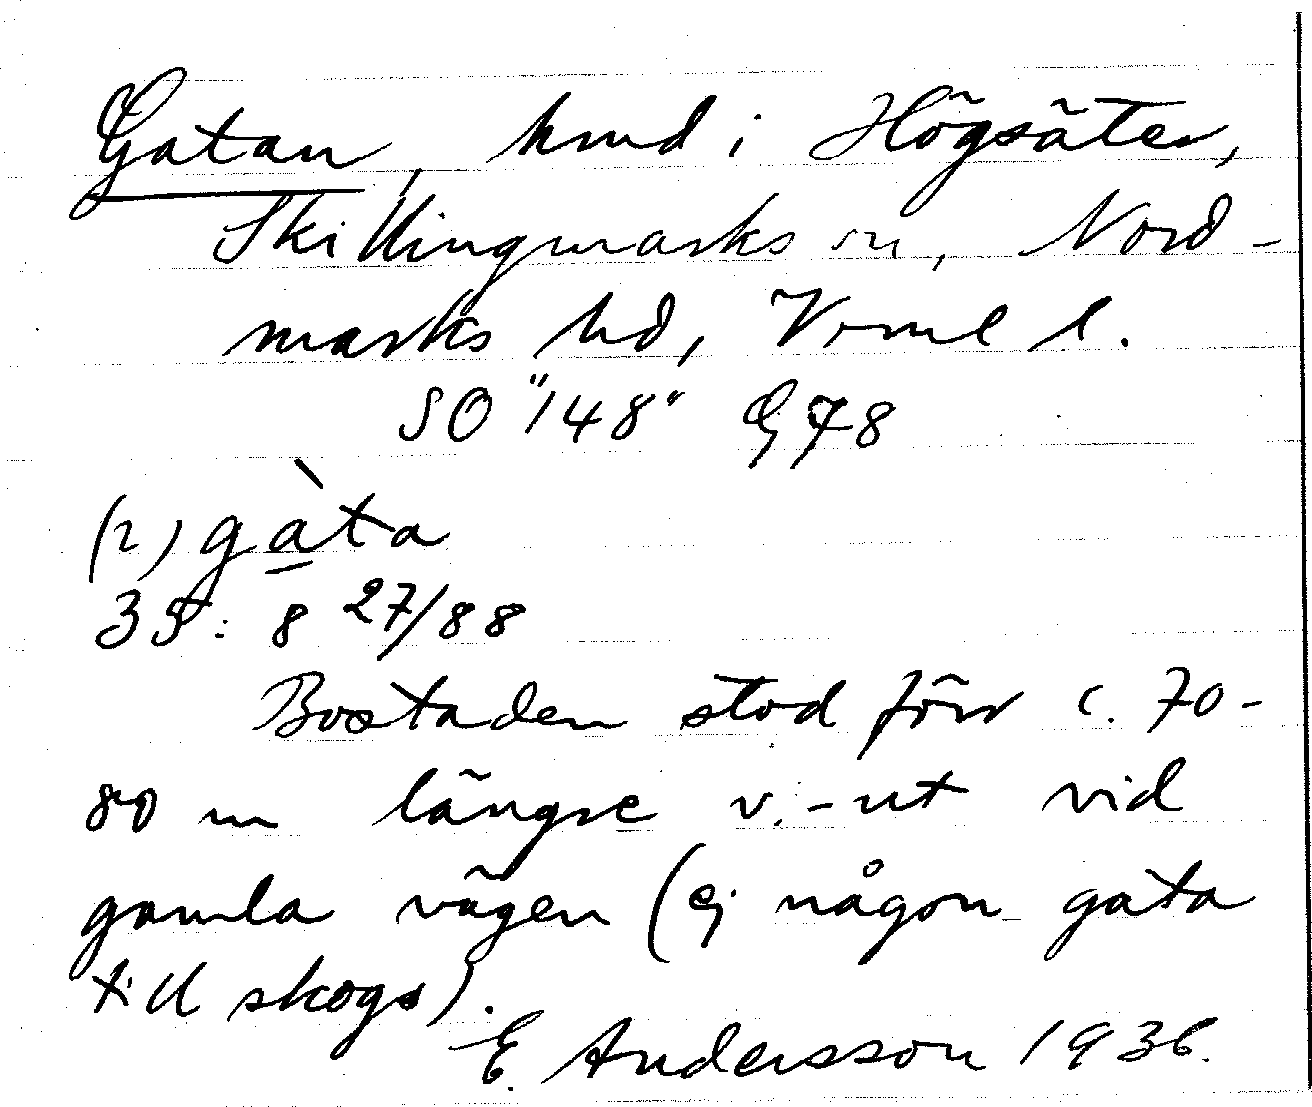 Gatan, hmd i Högsäter,
Skillingmarks sn, Nord-
marks hd, Vrml l.
SO "148" G 78
(2) gàta
35: 8 27/88
Bostaden stod förr c. 70-
80 m längre v.-ut vid
gamla vägen (ej någon gata
till skogs).
E. Andersson 1936.